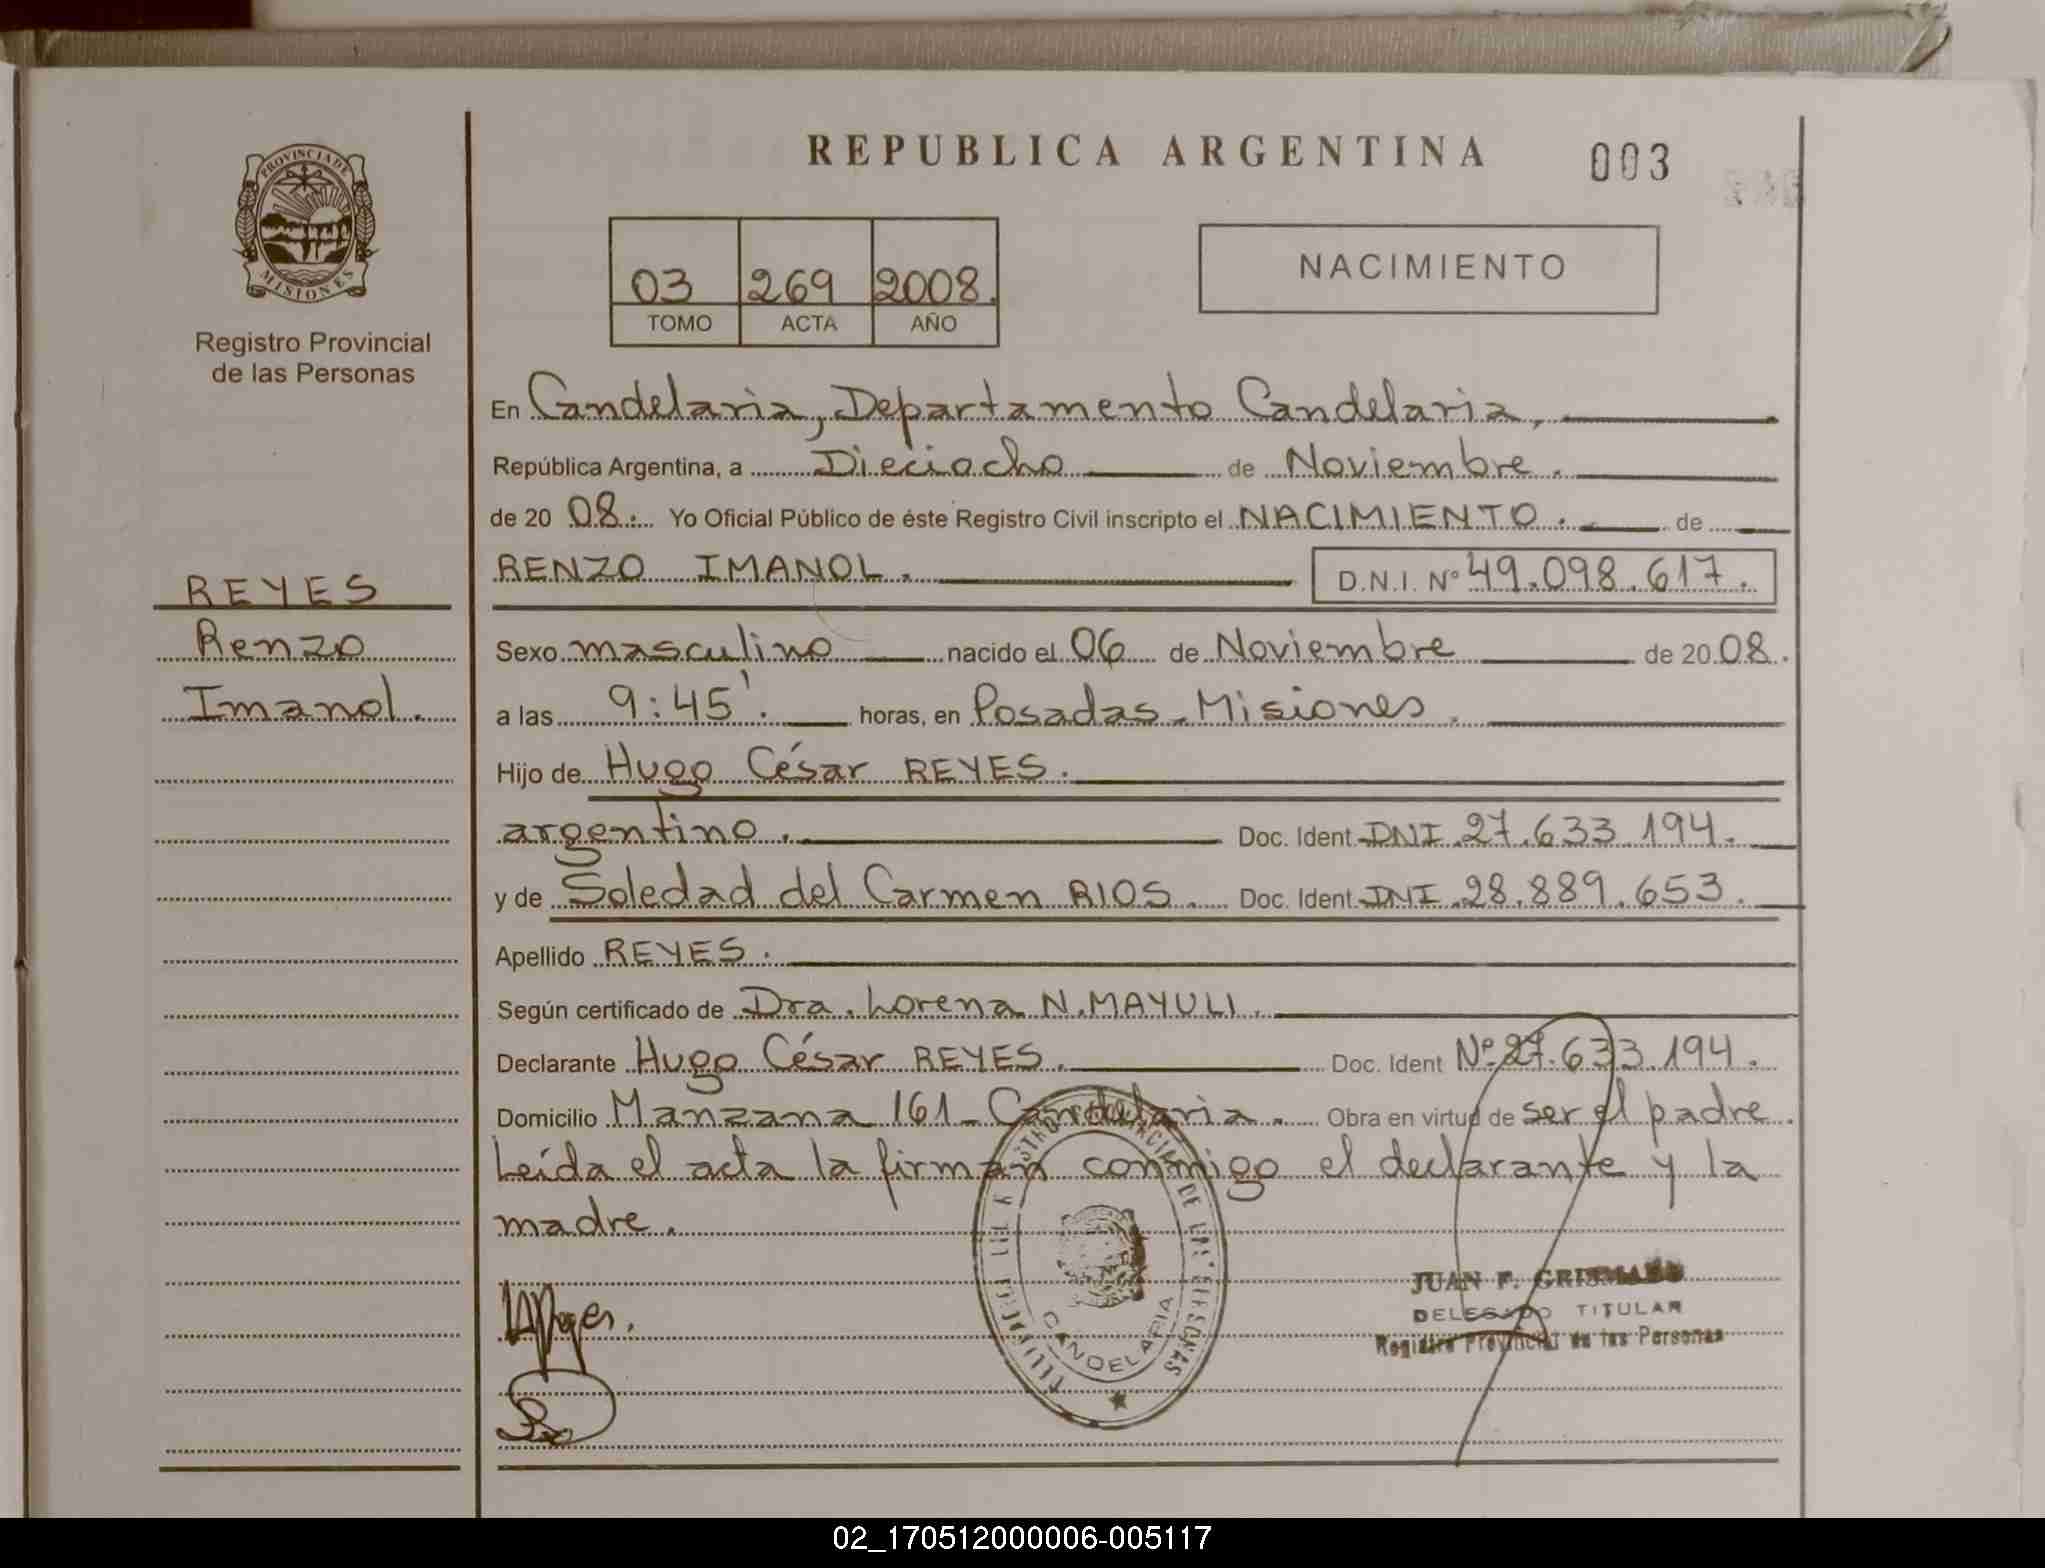 REPUBLICA ARGENTINA 003
PROVINCIA DE MISIONES
Registro Provincial
de las Personas
03 269 2008.
TOMO ACTA AÑO
NACIMIENTO
REYES
Renzo
Imanol.
En Candelaria, Departamento Candelaria,
República Argentina, a Dieciocho de Noviembre.
de 20 08. Yo Oficial Público de éste Registro Civil inscripto el NACIMIENTO. de
RENZO IMANOL. D.N.I. Nº 49.098.617.
Sexo masculino nacido el 06 de Noviembre de 20 08.
a las 9:45'. horas, en Posadas - Misiones.
Hijo de Hugo César REYES.
argentino. Doc. Ident. DNI. 27.633.194.
y de Soledad del Carmen RIOS. Doc. Ident. DNI. 28.889.653.
Apellido REYES.
Según certificado de Dra. Lorena N. MAYULI.
Declarante Hugo César REYES. Doc. Ident Nº 27.633.194.
Domicilio Manzana 161 - Candelaria. Obra en virtud de ser el padre.
Leída el acta la firman conmigo el declarante y la
madre.
CANDELARIA
JUAN F.
DELEGADO TITULAR
Registro Provincial de las Personas
02_170512000006-005117